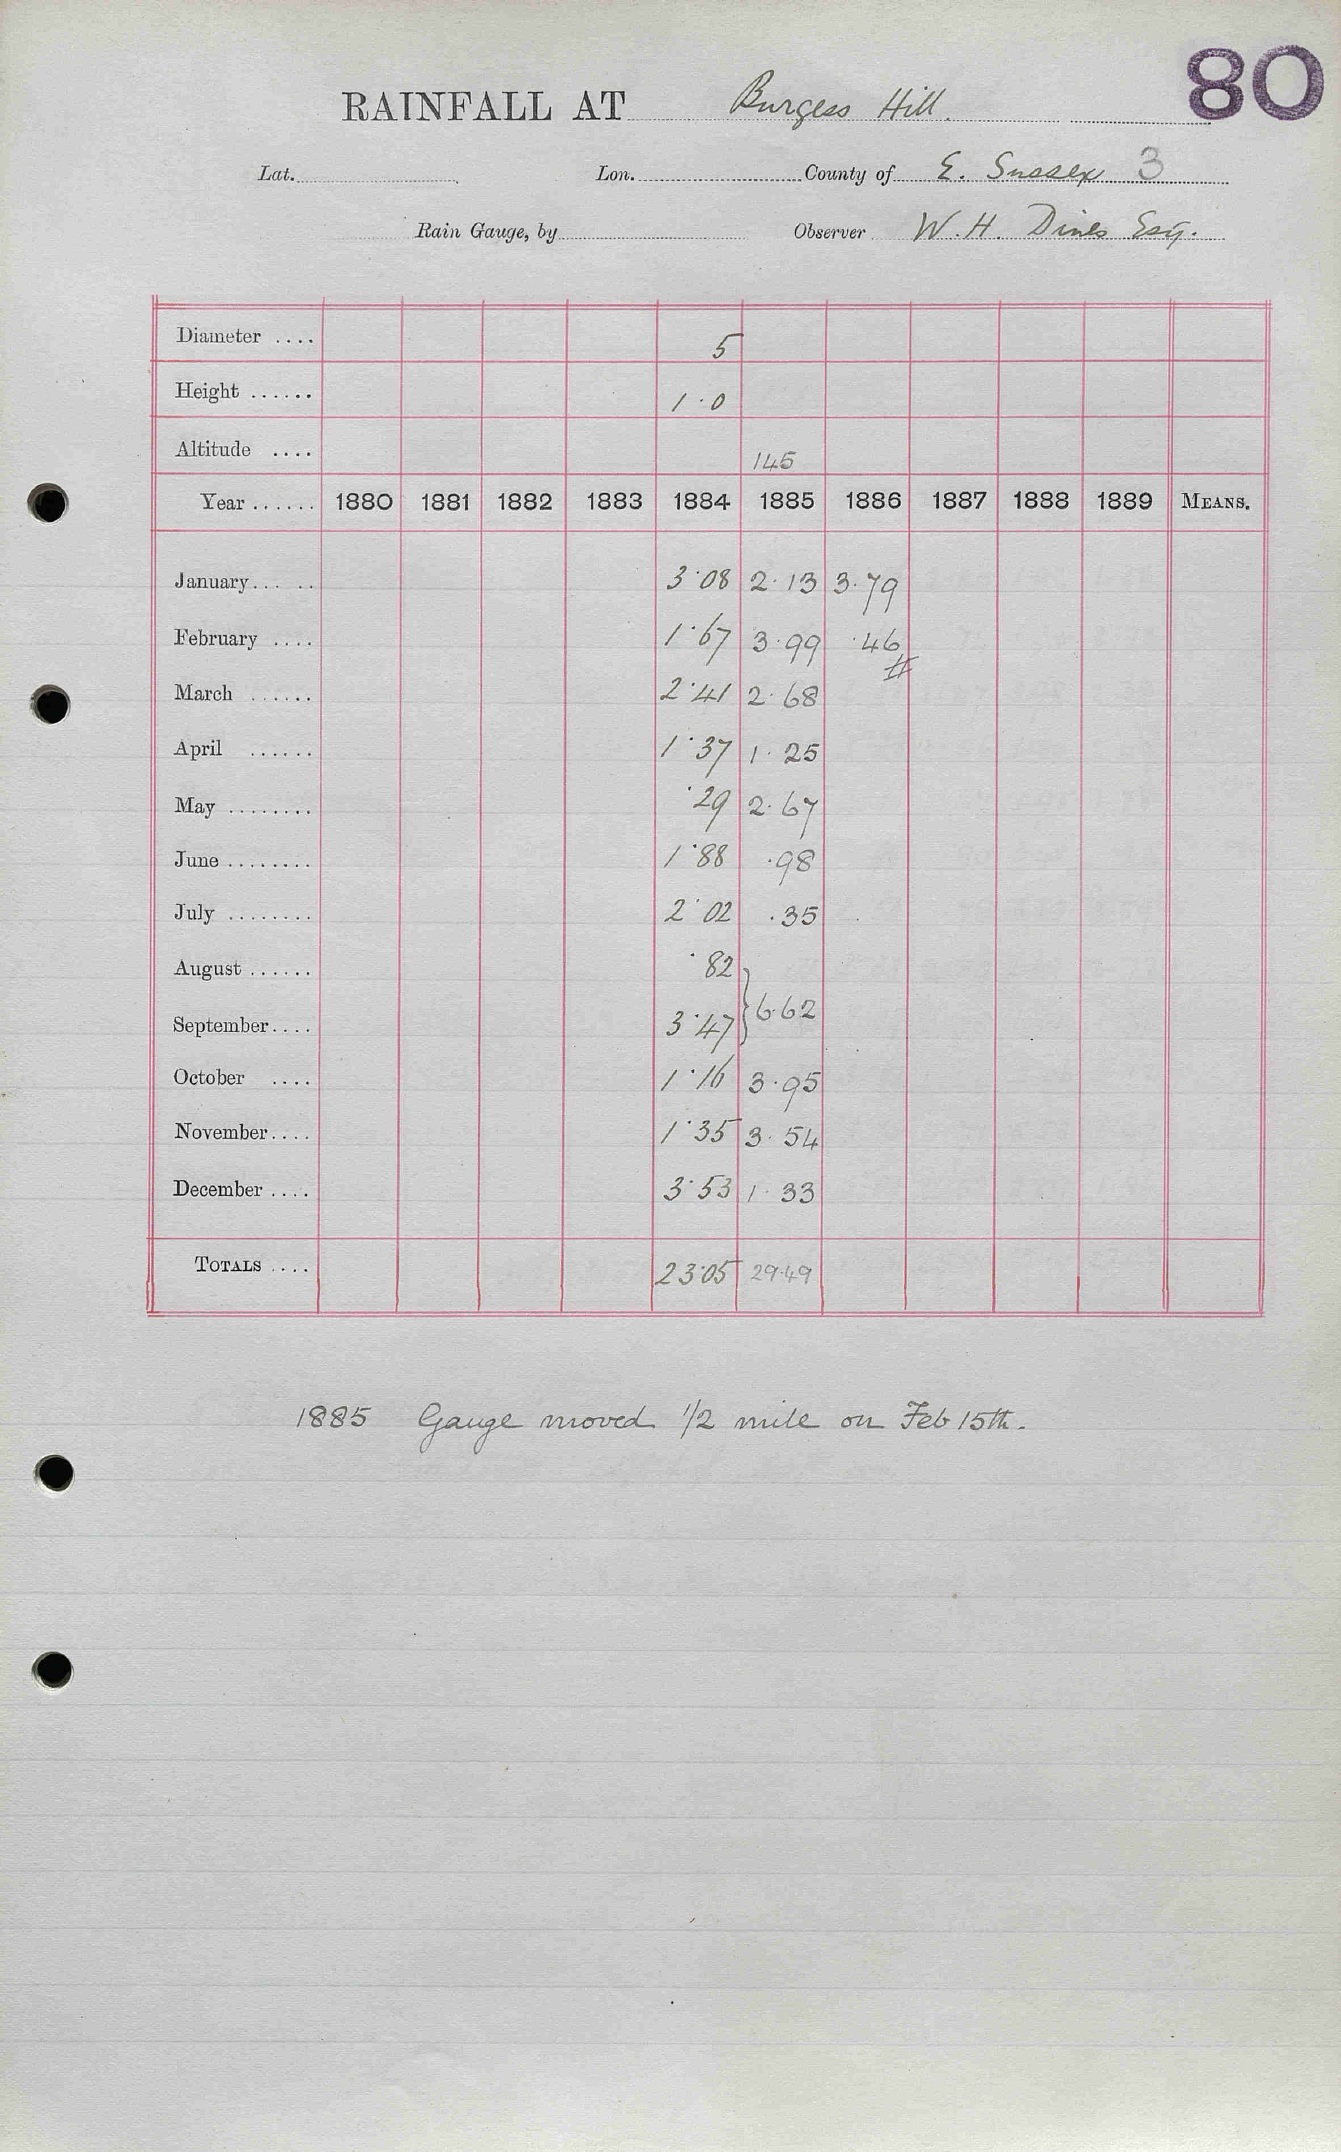 80
RAINFALL AT Burgess Hill.
Lat. Lon. County of E. Sussex 3
Rain Gauge, by Observer W. H. Dines Esq.
Diameter .... 5
Height ...... 1.0
Altitude .... 145
Year ...... 1880 1881 1882 1883 1884 1885 1886 1887 1888 1889 MEANS.
January ... .. 3.08 2.13 3.79
February .... 1.67 3.99 .46
March ...... 2.41 2.68
April ...... 1.37 1.25
May ........ .29 2.67
June ........ 1.88 .98
July ........ 2.02 .35
August ...... .82
September .... 3.47 } 6.62
October .... 1.16 3.95
November .... 1.35 3.54
December .... 3.53 1.33
TOTALS .... 23.05 29.49
1885 Gauge moved 1/2 mile on Feb 15th.